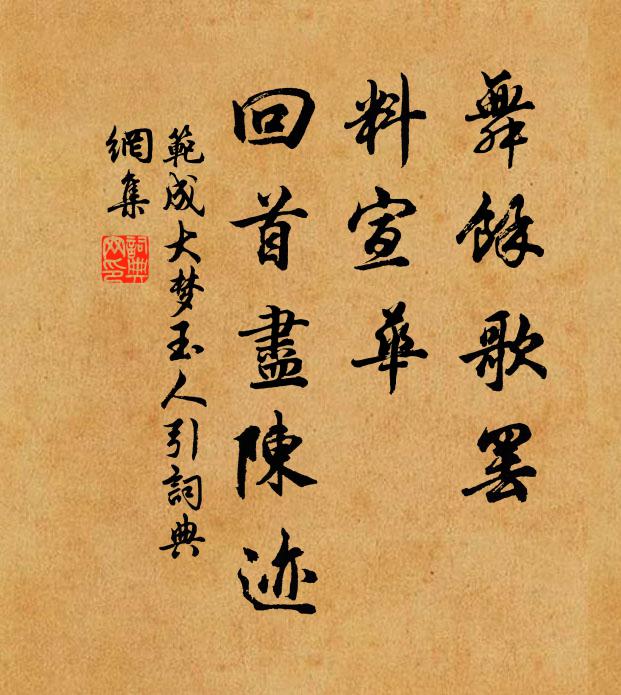 舞餘歌罷
料宣華
回首盡陳迹
範成大梦玉人引詞典
網集
詞典
网印